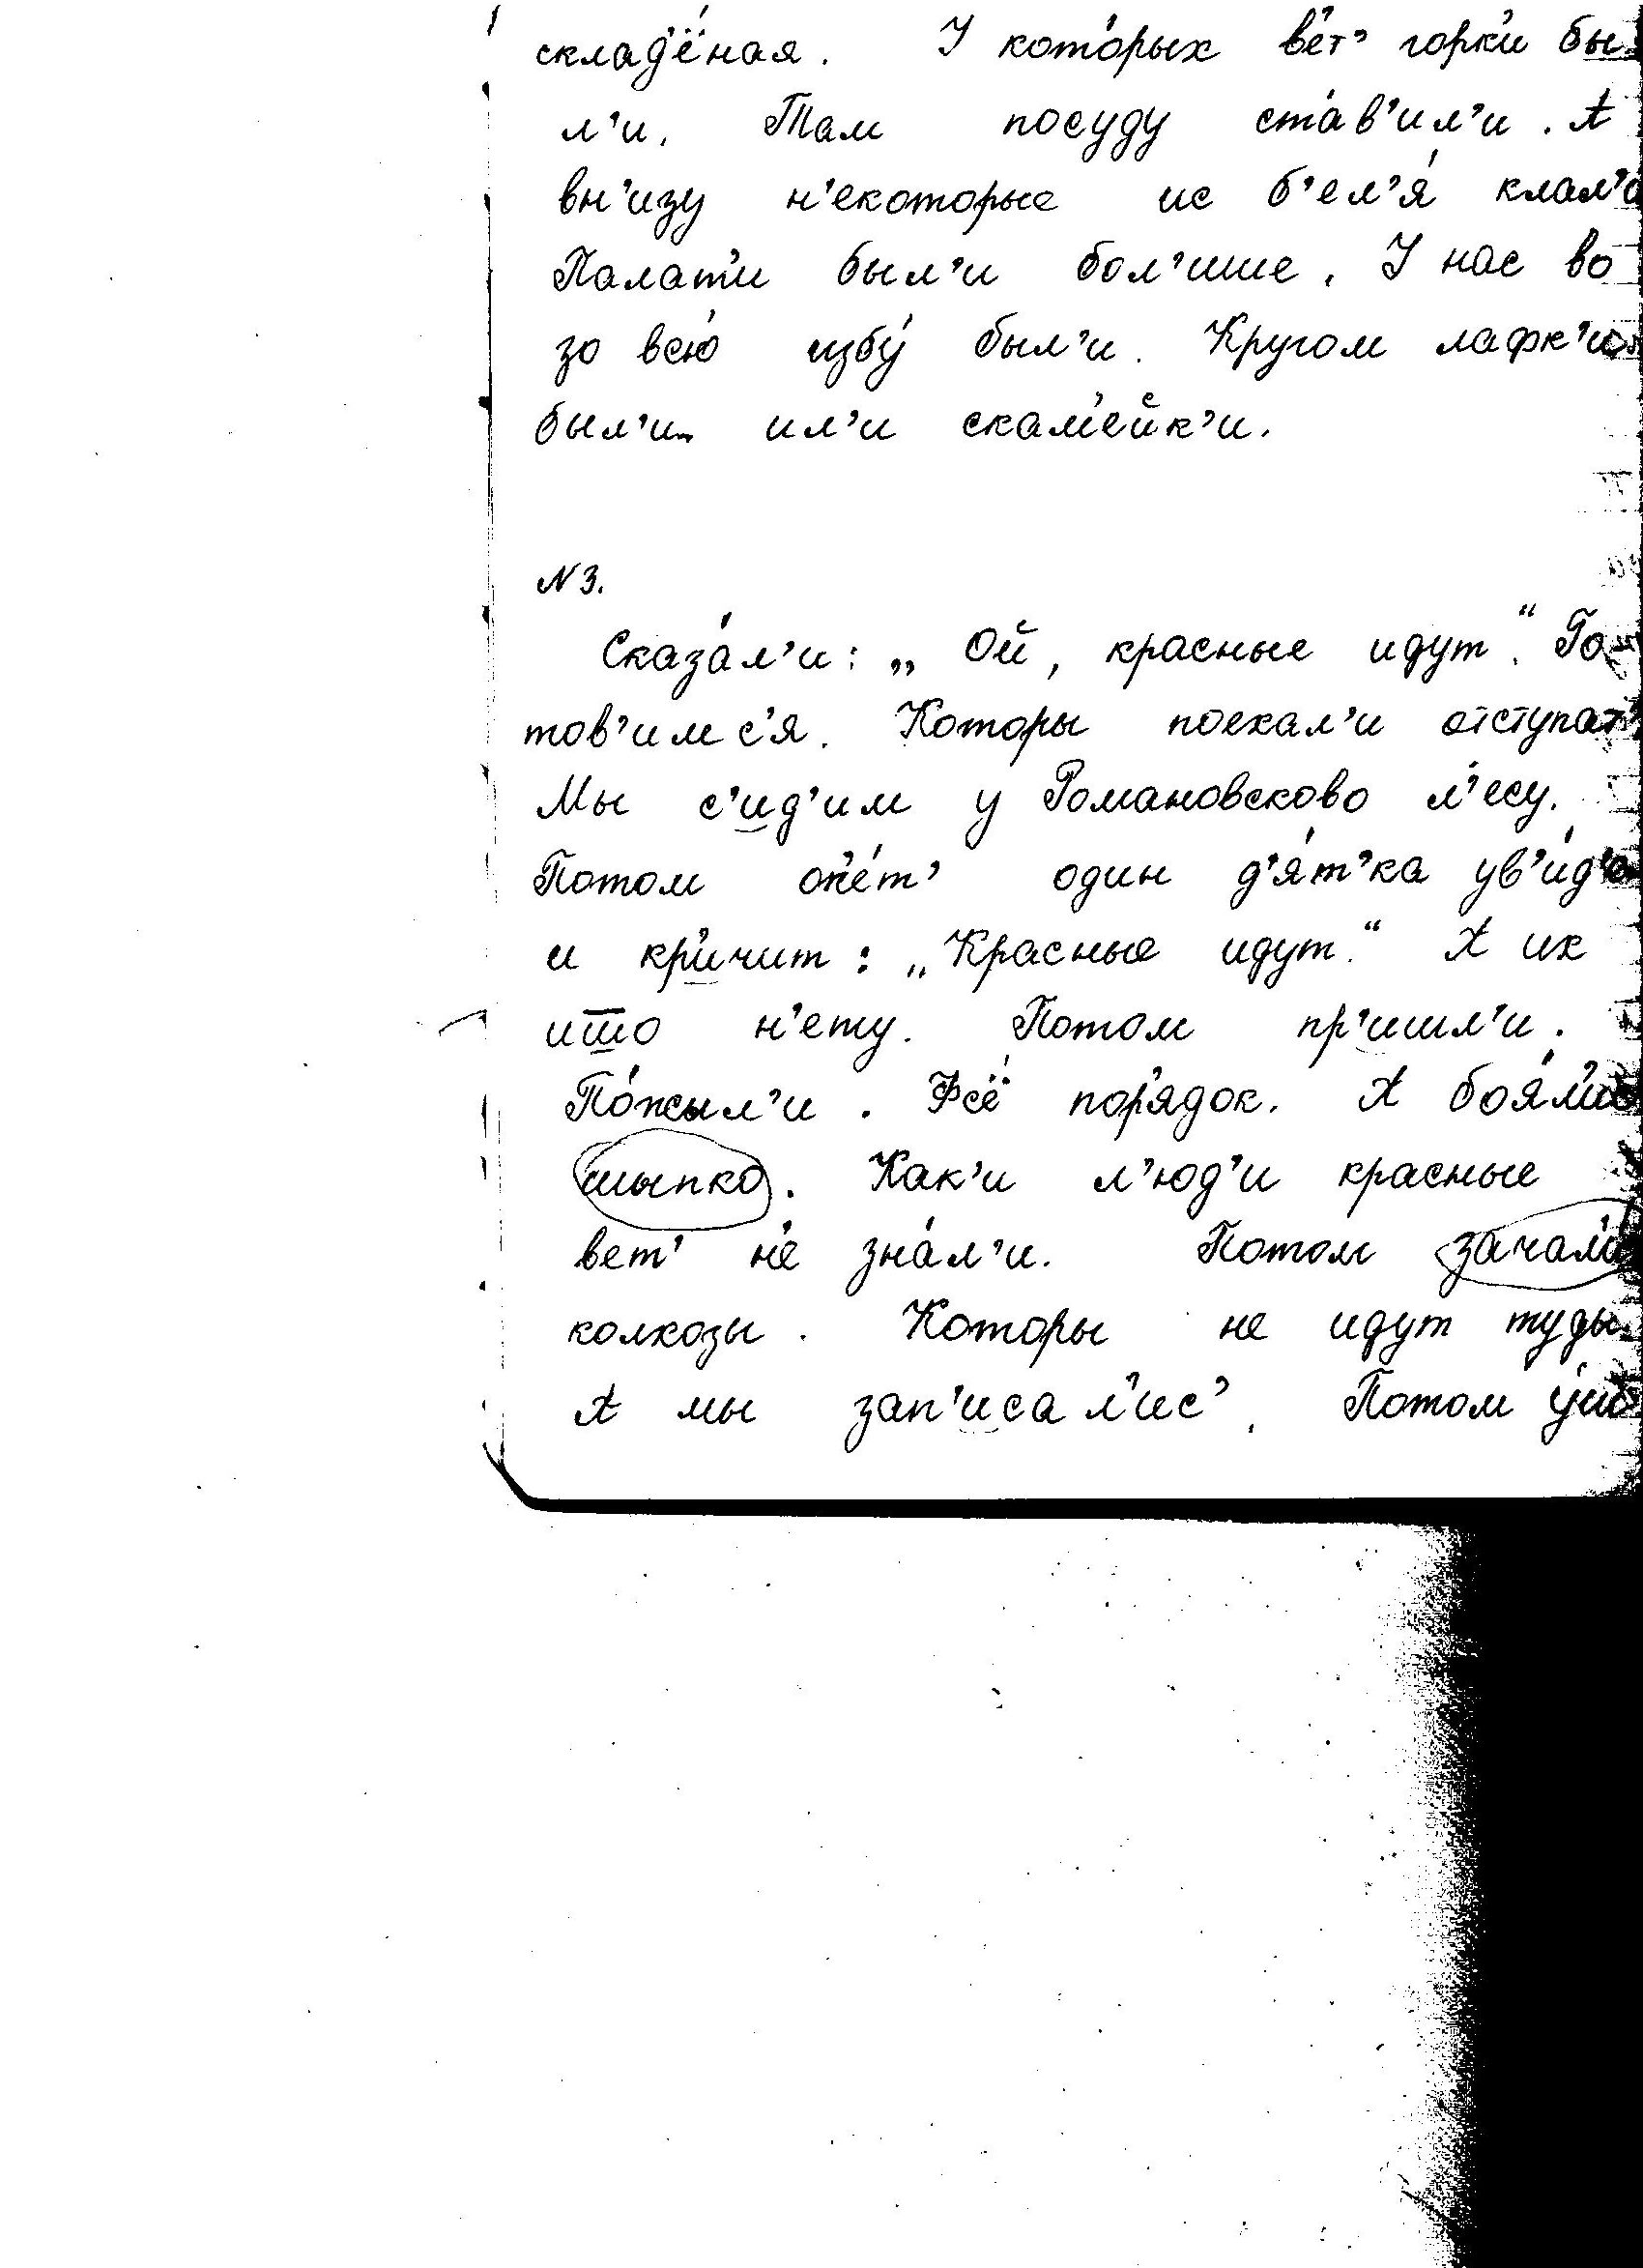 склад'ёная. У кото́рых в'ет' горк'и бы
л'и. Там посуду ста́в'ил'и. А
вн'изу н'екоторые ис б'ел'я́ клал'и
Палат'и был'и бол'шие. У нас во
зо всю́ избу́ был'и. Кругом лафк'и
был'и ил'и скам'ейк'и.
N 3.
Сказа́л'и: „Ой, красные идут“. Го-
тов'имс'я. Которы поехал'и отступат'
Мы с'ид'им у Романовсково л'есу.
Потом оп'е́т' один д'я́т'ка ув'и́д'
и кр'ичит: „Красные идут.“ А их
ишо н'ету. Потом пр'ишл'и.
По́жыл'и. Фсё пор'ядок. А боя́л'ис'
шыпко. Как'и л'юд'и красные
вет' н'е зна́л'и. Потом зачал'и
колхозы. Которы не идут туды.
А мы зап'исал'ис'. Потом